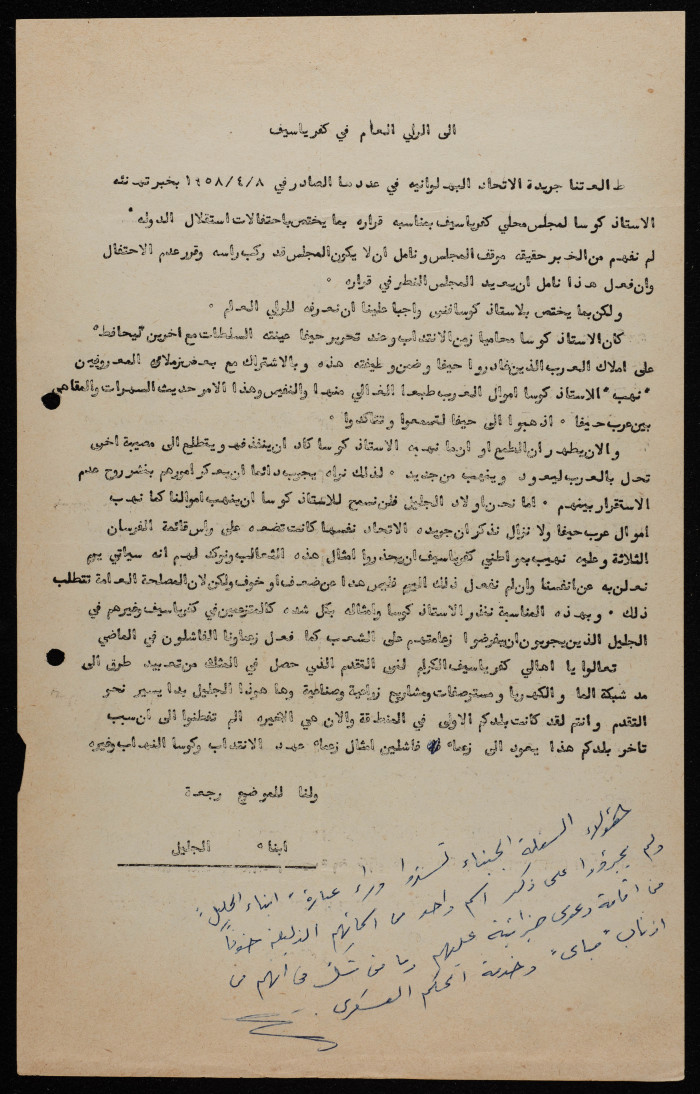 الى الراي العام في كفرياسيف
طالعتنا جريدة الاتحاد البهلوانيه في عددها الصادر في ١٩٥٨/٤/٨ بخبر تهنئه
الاستاذ كوسا لمجلس محلي كفرياسيف بمناسبه قراره بما يختص باحتفالات استقلال الدوله ٠
لم نفهم من الخبر حقيقه موقف المجلس ونامل ان لا يكون المجلس قد ركب راسه وقرر عدم الاحتفال
وان فعل هذا نامل ان يعيد المجلس النظر في قراره ٠
ولكن بما يختص بلاستاذ كوسا فنى واجبا علينا ان نعرفه للراي العام ٠
كان الاستاذ كوسا محاميا زمن الانتداب وعند تحرير حيفا عينته السلطات مع اخرين "ليحافظ"
على املاك العرب الذين غادروا حيفا وضمن وظيفته هذه وبالاشتراك مع بعض زملائه المعروفين
"نهب" الاستاذ كوسا اموال العرب طبعا الغالي منها والنفيس وهذا الامر حديث السهرات والمقاهي
بين عرب حيفا ٠ اذهبوا الى حيفا لتسمعوا وتتاكدوا ٠
والان يظهر ان الطمع او ان ما نهبه الاستاذ كوسا كاد ان ينفذ فهو يتطلع الى مصيبة اخرى
تحل بالعرب ليعود وينهب من جديد ٠ لذلك نراه يجرب دائما ان يعكر امورهم بنشر روح عدم
الاستقرار بينهم ٠ اما نحن اولاد الجليل فلن نسمح للاستاذ كوسا ان ينهب اموالنا كما نهب
اموال عرب حيفا ولا نزال نذكر ان جريده الاتحاد نفسها كانت تضعه على راس قائمة الفرسان
الثلاثة وعليه نهيب بمواطني كفرياسيف ان يحذروا امثال هذه الثعالب ونوكد لهم انه سياتي يوم
نعلن به عن انفسنا وان لم نفعل ذلك اليوم فليس هذا عن ضعف او خوف ولكن لان المصلحة العامة تتطلب
ذلك ٠ وبهذه المناسبة ننذر الاستاذ كوسا وامثاله بكل شده كالمتزعمين في كفرياسيف وغيرهم في
الجليل الذين يجربون ان يفرضوا زعامتهم على الشعب كما فعل زعماونا الفاشلون في الماضي
تعالوا يا اهالي كفرياسيف الكرام لنرى التقدم الذي حصل في المثلث من تعبيد طرق الى
مد شبكة الما والكهربا ومستوصفات ومشاريع زراعية وصناعية وها هوذا الجليل بدا يسير نحو
التقدم وانتم لقد كانت بلدكم الاولى في المنطقة والان هي الاخيره الم تفطنوا الى ان سبب
تاخر بلدكم هذا يعود الى زعماء فاشلين امثال زعماء عهد الانتداب وكوسا النهاب وغيره
ولنا للموضوع رجعة
ابناء الجليل
هؤلاء السفلة الجبناء تستروا وراء عبارة "ابناء الجليل"
ولم يجرؤوا على ذكر اسم واحد من اسمائهم الذليلة خوفاً
من اقامة دعوى جزائية عليهم وما من شك في انهم من
اذناب "مباي" وخدمة الحكم العسكري.